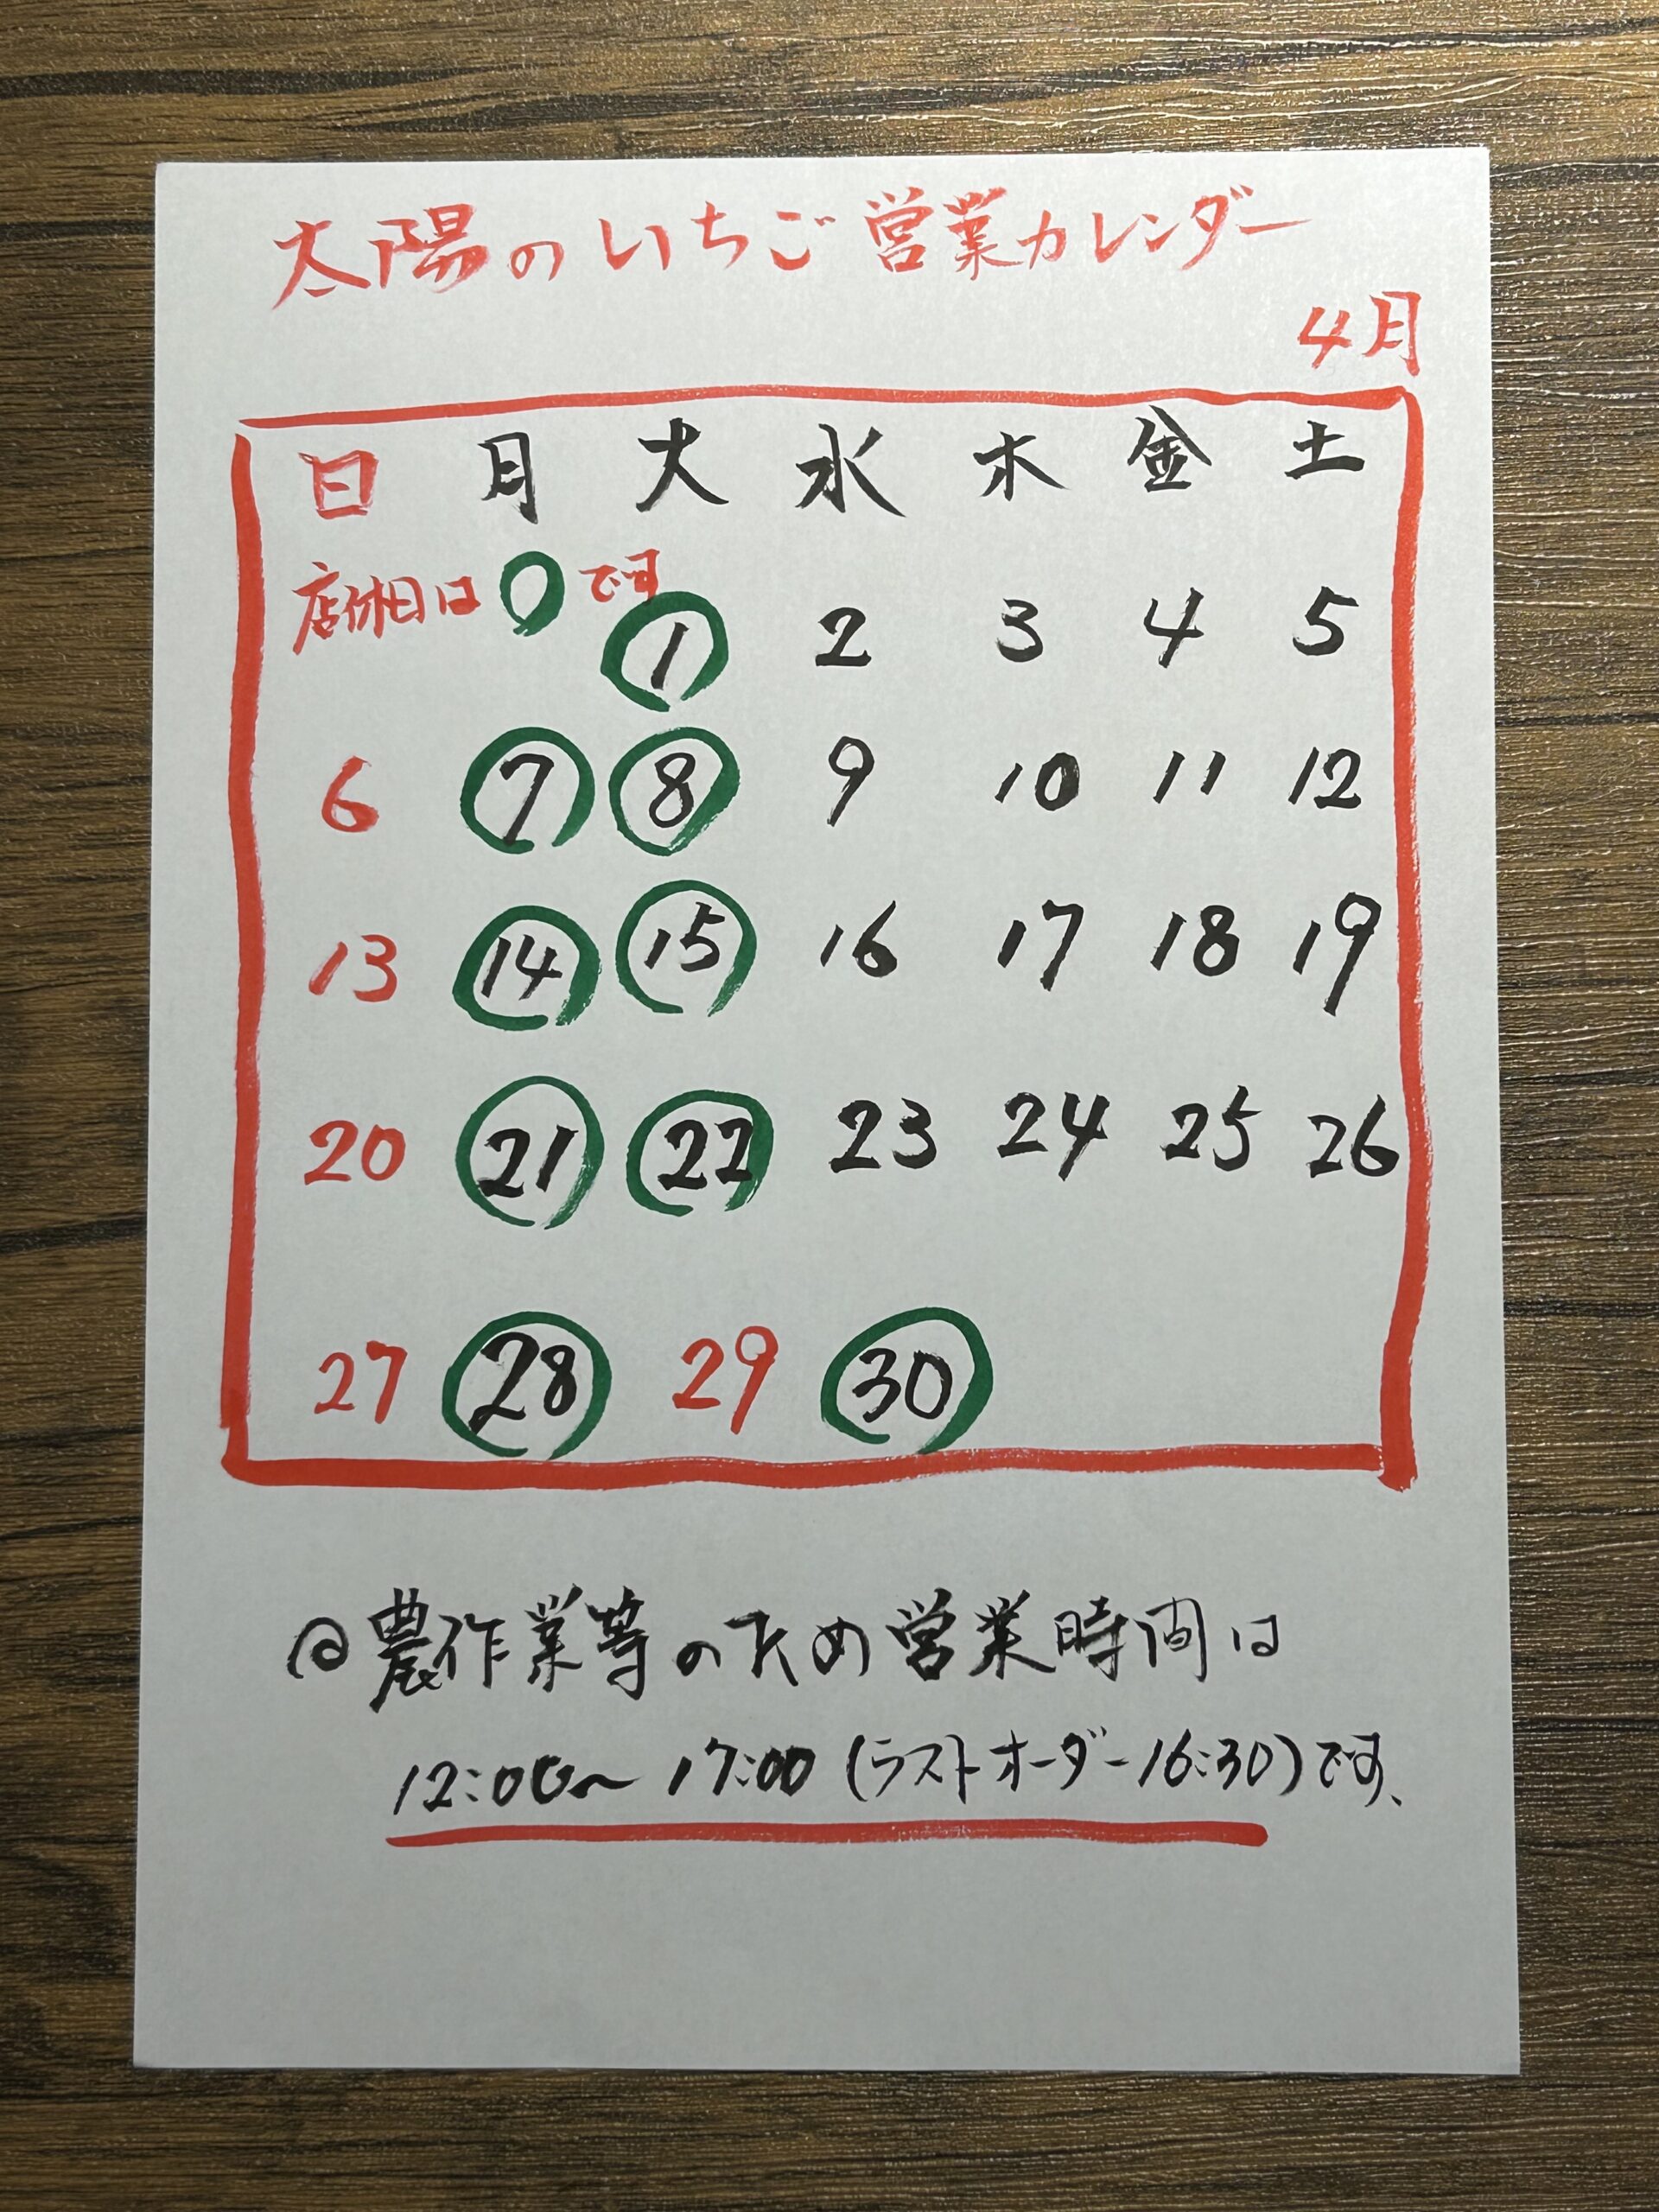 太陽のいちご営業カレンダー
4月
日 月 火 水 木 金 土
店休日は○です
1 2 3 4 5
6 7 8 9 10 11 12
13 14 15 16 17 18 19
20 21 22 23 24 25 26
27 28 29 30
◎農作業等のため営業時間は
12:00〜17:00(ラストオーダー16:30)です、